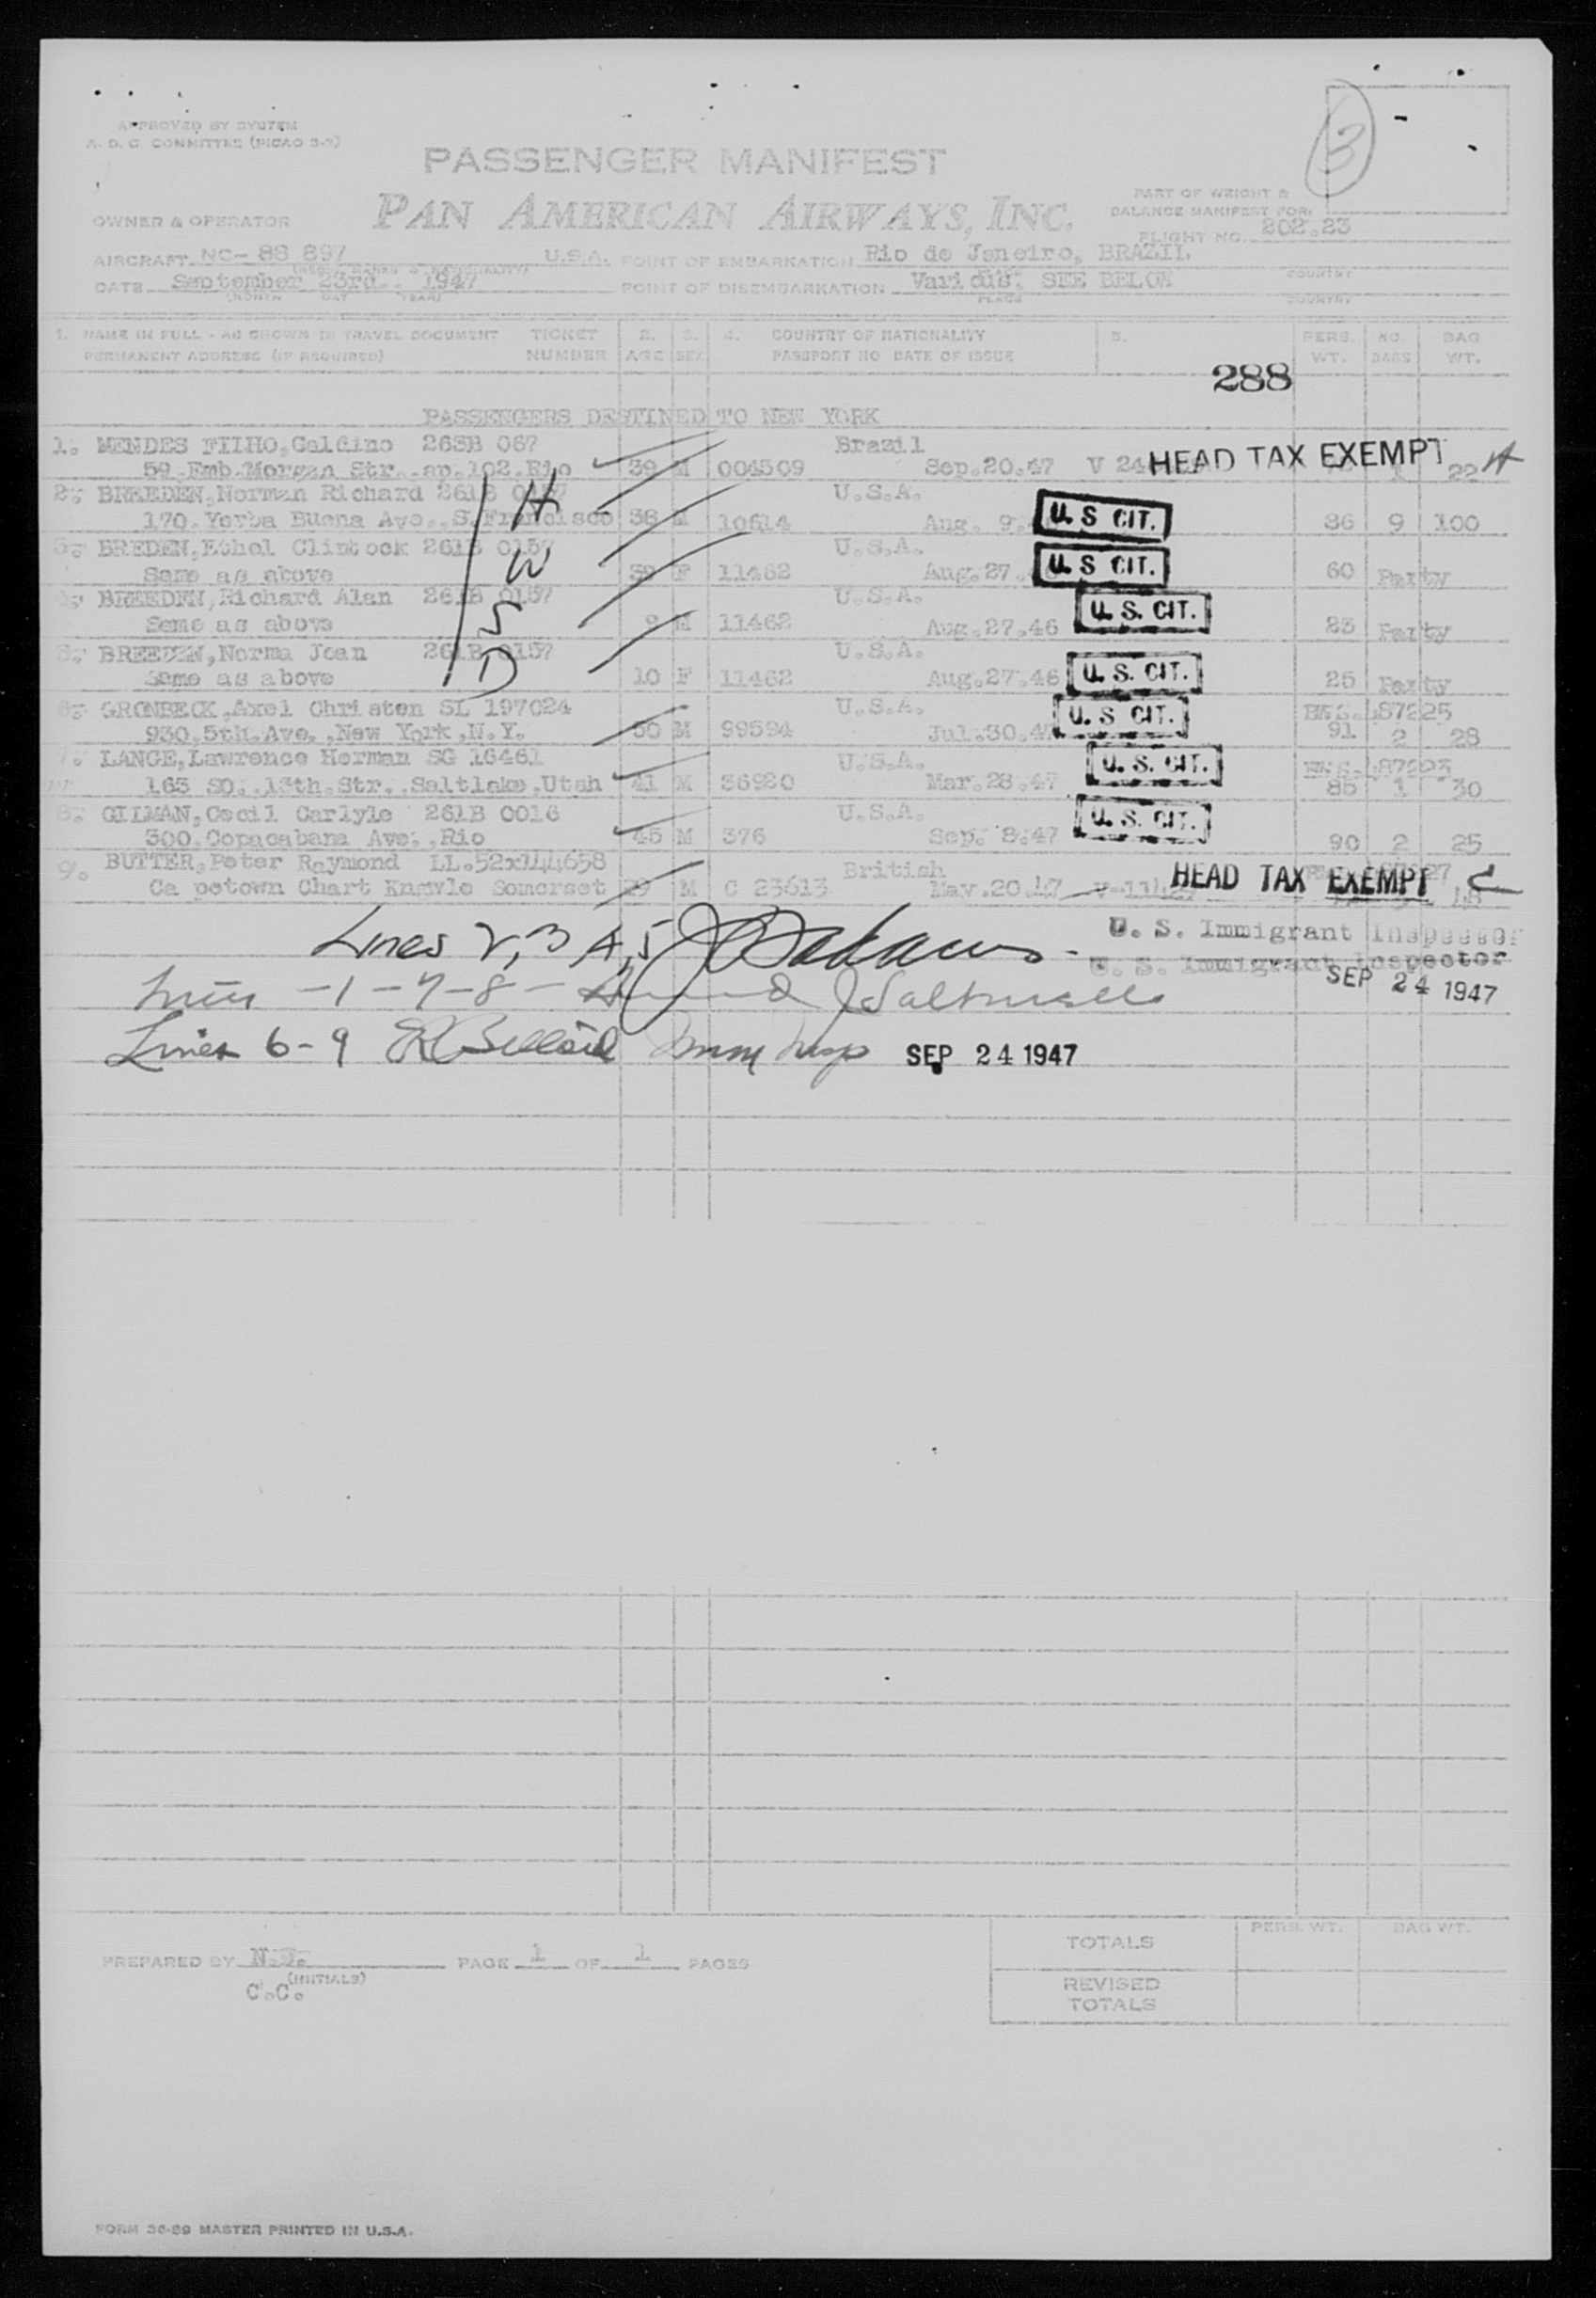 3
APPROVED BY SYSTEM
A. D. C. COMMITTEE (PICAO 3-3)
PASSENGER MANIFEST
PAN AMERICAN AIRWAYS, INC.
PART OF WEIGHT &
BALANCE MANIFEST FOR:
FLIGHT NO. 202.23
OWNER & OPERATOR
AIRCRAFT NC- 88 897 U.S.A. POINT OF EMBARKATION Rio de Janeiro, BRAZIL
DATE September 23rd. 1947 POINT OF DISEMBARKATION Various: SEE BELOW
(MONTH DAY YEAR) PLACE COUNTRY
1. NAME IN FULL - AS SHOWN IN TRAVEL DOCUMENT TICKET 2. 3. 4. COUNTRY OF NATIONALITY 5. PERS. NO. BAG
PERMANENT ADDRESS (IF REQUIRED) NUMBER AGE SEX PASSPORT NO DATE OF ISSUE WT. BAGS WT.
288
PASSENGERS DESTINED TO NEW YORK
1. MENDES FILHO,Galdino 263B 067 Brazil
59.Emb.Morgan Str..ap.102.Rio 39 M 004509 Sep.20.47 V 24 HEAD TAX EXEMPT 1 22 H
2. BREEDEN,Norman Richard 261B 0157 U.S.A.
170.Yerba Buena Ave.,S.Francisco 38 M 10614 Aug. 9. U. S CIT. 86 9 100
3. BREDEN,Ethel Clintock 261B 0157 U.S.A.
Same as above F 11462 Aug.27. U. S CIT. 60 Party
BREEDEN,Richard Alan 261B 0157 U.S.A.
Same as above M 11462 Aug.27.46 U. S. CIT. 23 Party
5. BREEDEN,Norma Jean 261B 0157 U.S.A.
Same as above 10 F 11462 Aug.27.46 U. S. CIT. 25 Party
H
W
S
D
6. GRONBECK,Axel Christen SL 197024 U.S.A. 187225
930.5th.Ave.,New York,N.Y. 50 M 99594 Jul.30.47 U. S CIT. 91 2 28
7. LANGE,Lawrence Herman SG 16461 U.S.A. 187223
163 SO..13th.Str..Saltlake,Utah 41 M 36920 Mar.28.47 U. S. CIT. 85 1 30
8. GILMAN,Cecil Carlyle 261B 0016 U.S.A.
300.Copacabana Ave.,Rio 45 M 376 Sep. 8.47 U. S. CIT. 90 2 25
9. BUTTER,Peter Raymond LL.52x144658 British
Ca petown Chart Knowle Somerset 29 M C 23613 May.20.47 HEAD TAX EXEMPT 27
Lines 2, 3 4, 5 U. S. Immigrant Inspector
U. S. Immigrant Inspector
- 1 - 7 - 8 - SEP 24 1947
Lines 6 - 9 Imm Insp SEP 24 1947
TOTALS PERS. WT. BAG WT.
PREPARED BY N.J. PAGE 1 OF 1 PAGES
(INITIALS)
C.C.
REVISED
TOTALS
FORM 36-89 MASTER PRINTED IN U.S.A.